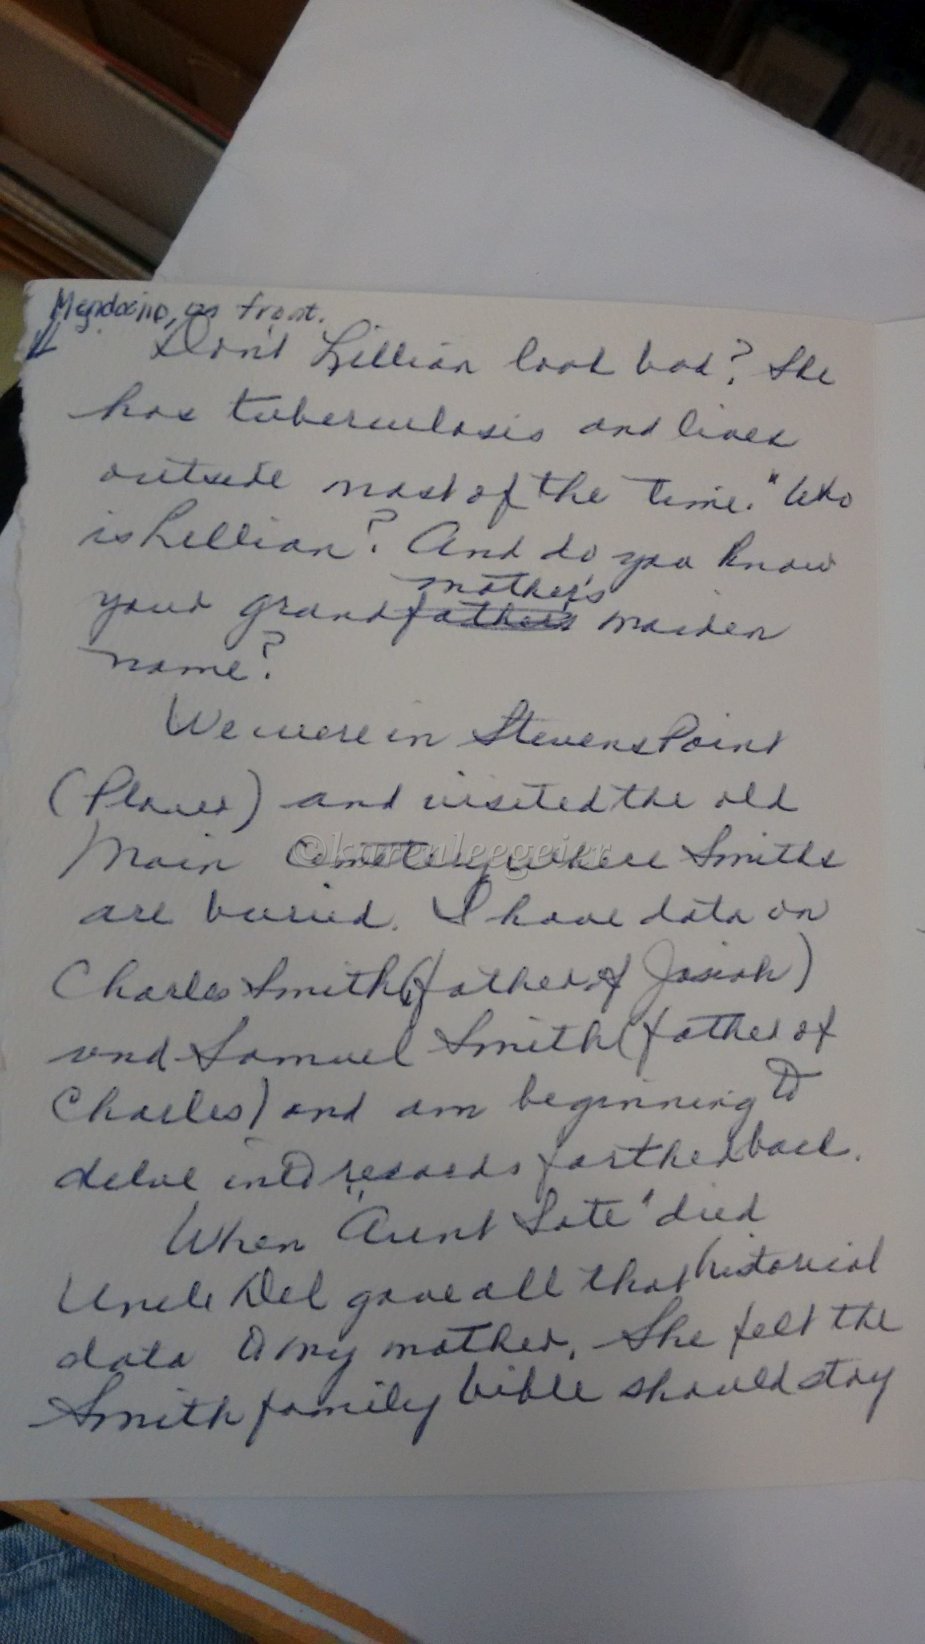 Mendocino, on front.
Don't Lillian look bad? She
has tuberculosis and lives
outside most of the time." Who
is Lillian? And do you know
mother's
your grandfather's maiden
name?
We were in Stevens Point
(Plover) and visited the old
Main Cemetery where Smiths
©karenleegeier
are buried. I have data on
Charles Smith (father of Josiah)
and Samuel Smith (father of
Charles) and am beginning to
delve into records farther back.
When "Aunt Late" died
Uncle Del gave all that historical
data to my mother. She felt the
Smith family bible should stay